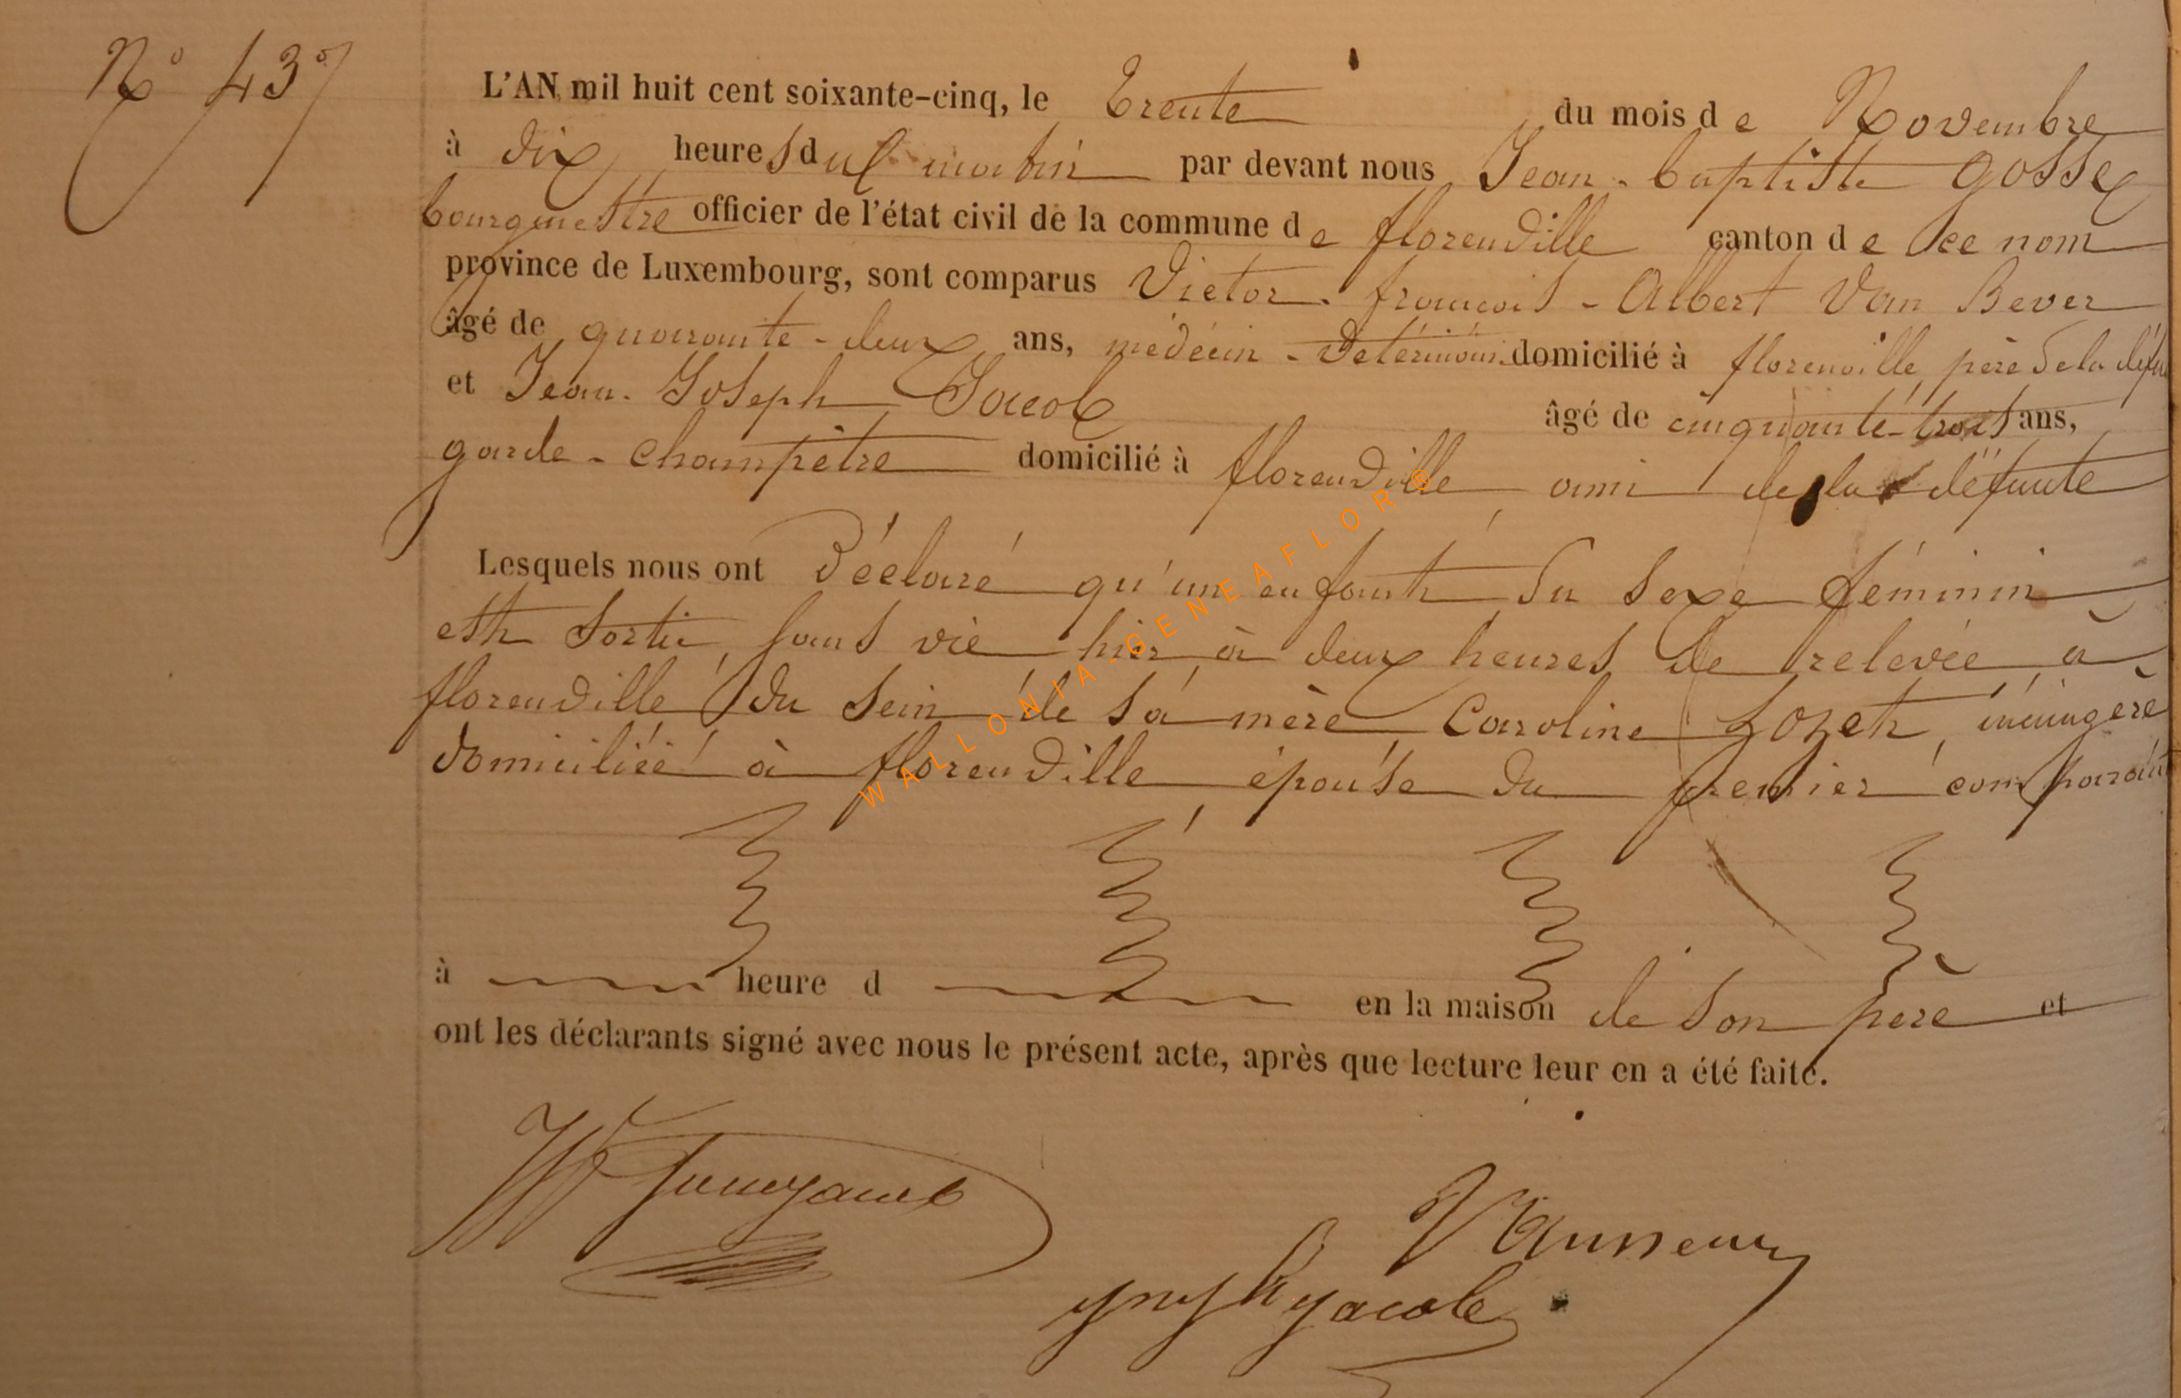 N° 43
L'AN mil huit cent soixante-cinq, le Trente du mois de Novembre
à dix heures du matin par devant nous Jean-baptiste
bourgmestre officier de l'état civil de la commune de florenville canton de ce nom
province de Luxembourg, sont comparus Victor-françois-Albert Van Bever
âgé de quarante-deux ans, médecin-vétérinair domicilié à florenville, père de la
et Jean-Joseph Jacob âgé de cinquante-trois ans,
garde-champêtre domicilié à florenville ami de la défunte
Lesquels nous ont déclaré qu'un enfant du sexe féminin
est sortie sans vie hier à deux heures de relevée à
florenville du sein de sa mère Caroline ménagère
domiciliée à florenville épouse du premier comparant
à heure d en la maison de son père et
ont les déclarants signé avec nous le présent acte, après que lecture leur en a été faite.
Jacob
WALLONIA-GENEAFLORE